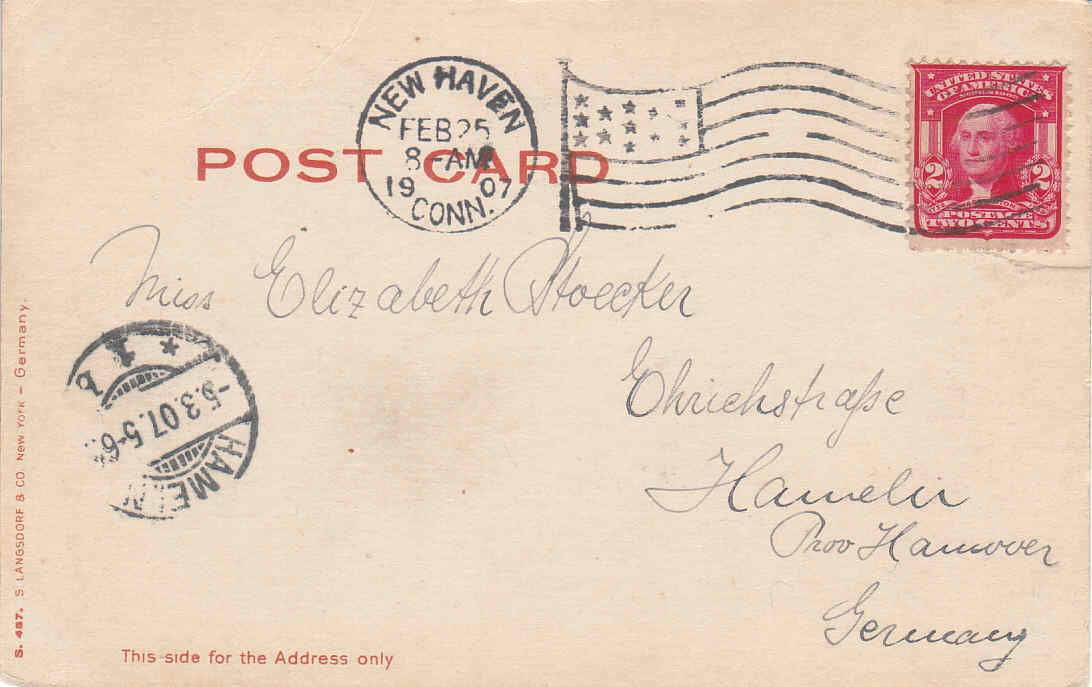 POST CARD
NEW HAVEN
FEB 25
8-AM
1907
CONN.
UNITED STATES
OF AMERICA
2 2
POSTAGE
TWO CENTS
Miss Elizabeth Stoecker
Ehrichstraße
Hameln
Prov Hannover
Germany
-5.3.07.5-6
HAMELN
S. 457. S LANGSDORF & CO. NEW YORK - Germany.
This side for the Address only